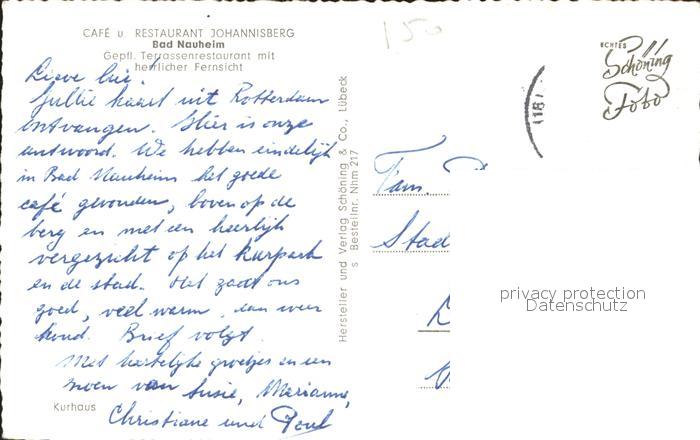 CAFÉ u. RESTAURANT JOHANNISBERG
Bad Nauheim
Gepfl. Terrassenrestaurant mit
herrlicher Fernsicht
Lieve lui!
Jullie kaart uit Rotterdam
ontvangen. Hier is onze
antwoord. We hebben eindelijk
in Bad Nauheim het goede
café gevonden, boven op de
berg en met een heerlijk
vergezicht op het kurpark
en de stad. Het gaat ons
goed, veel warm, dan weer
koud. Brief volgt.
Met hartelijke groetjes en een
zoen van Susie, Marianne,
Christiane und Paul
Kurhaus
Hersteller und Verlag Schöning & Co., Lübeck
s Bestellnr. Nhm 217
150
ECHTES
Schöning
Foto
(18)
Fam.
Stad
privacy protection
Datenschutz